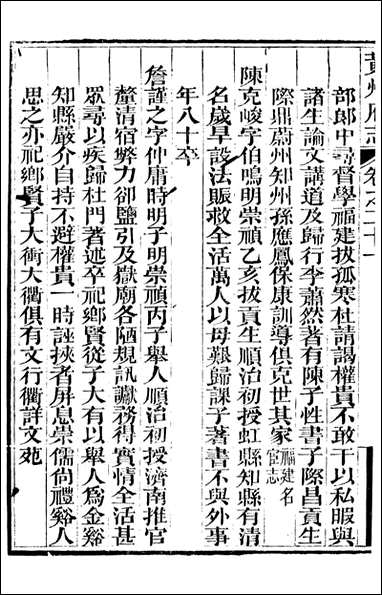 黃州府志　卷之二十一
部郎中尋督學福建拔孤寒杜請謁權貴不敢干以私暇與
諸生論文講道及歸行李蕭然著有陳子性書子際昌貢生
際鼎蔚州知州孫應鳳保康訓導俱克世其家福建名宦志
陳克峻字伯鳴明崇禎乙亥拔貢生順治初授虹縣知縣有清
名歲旱設法賑救全活萬人以母艱歸課子著書不與外事
年八十卒
詹謹之字仲庸時明子明崇禎丙子舉人順治初授濟南推官
釐清宿弊力卻鹽引及嶽廟各陋規訊讞務得實情全活甚
眾尋以疾歸杜門著述卒祀鄉賢從子大有以舉人為金谿
知縣嚴介自持不避權貴一時誣挾者屏息崇儒尙禮谿人
思之亦祀鄉賢子大衝大衢俱有文行衢詳文苑